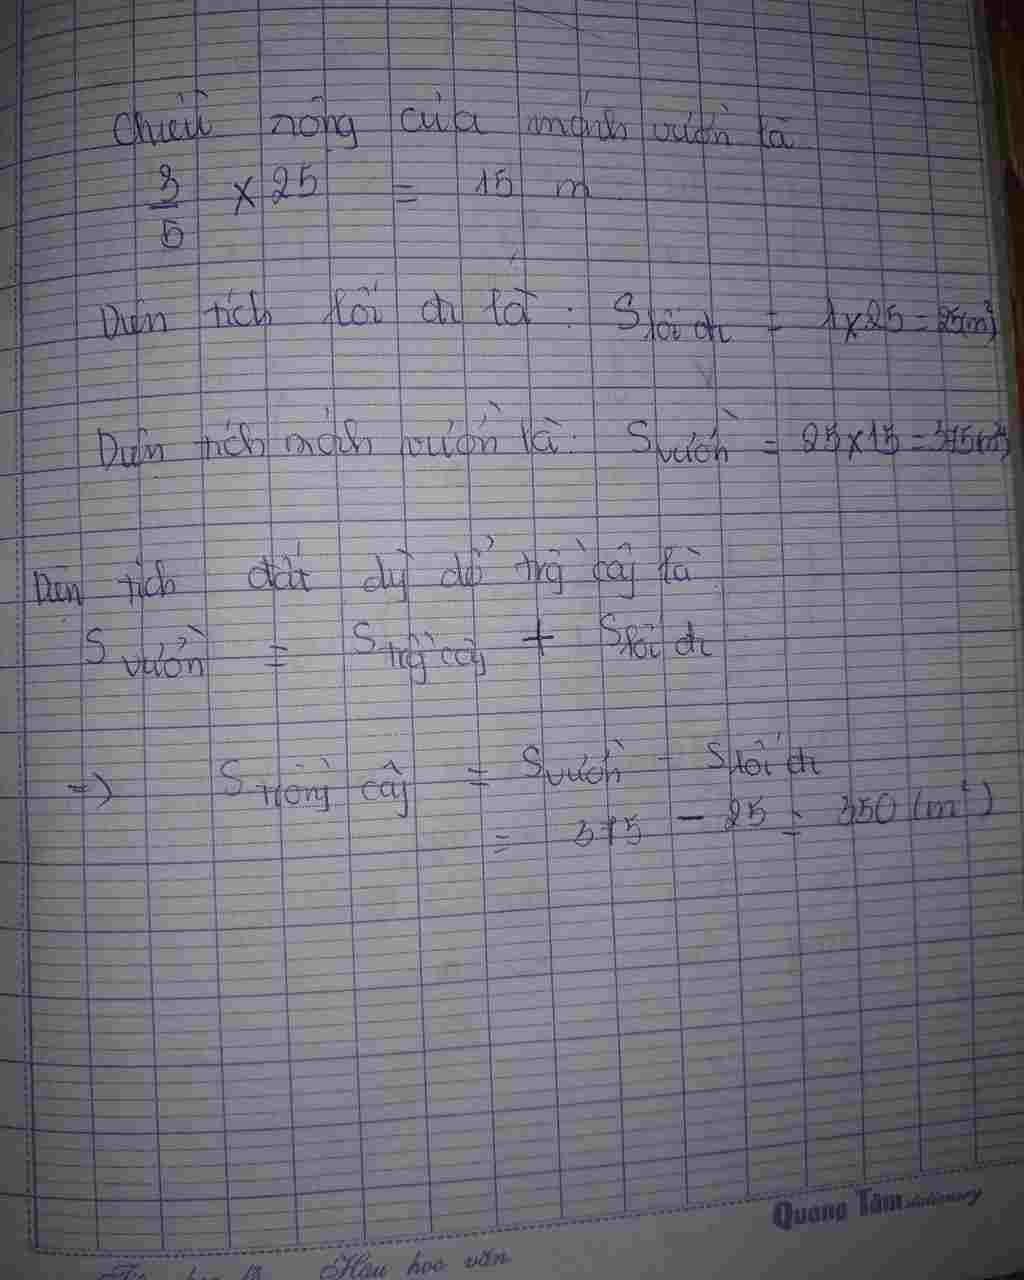 Chiều rộng của mảnh vườn là
3/5 × 25 = 15 m
Diện tích lối đi là : S lối đi = 1 × 25 = 25(m²)
Diện tích mảnh vườn là: S vườn = 25 × 15 = 375(m²)
Diện tích đất để trồng cây là
S vườn = S trồng cây + S lối đi
=> S trồng cây = S vườn - S lối đi
= 375 - 25 = 350 (m²)
Quang Tâm stationery
Hậu học văn